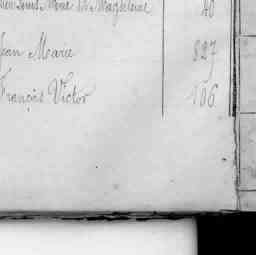 Marie Magdeleine 40
Jean Marie 827
François Victor 106